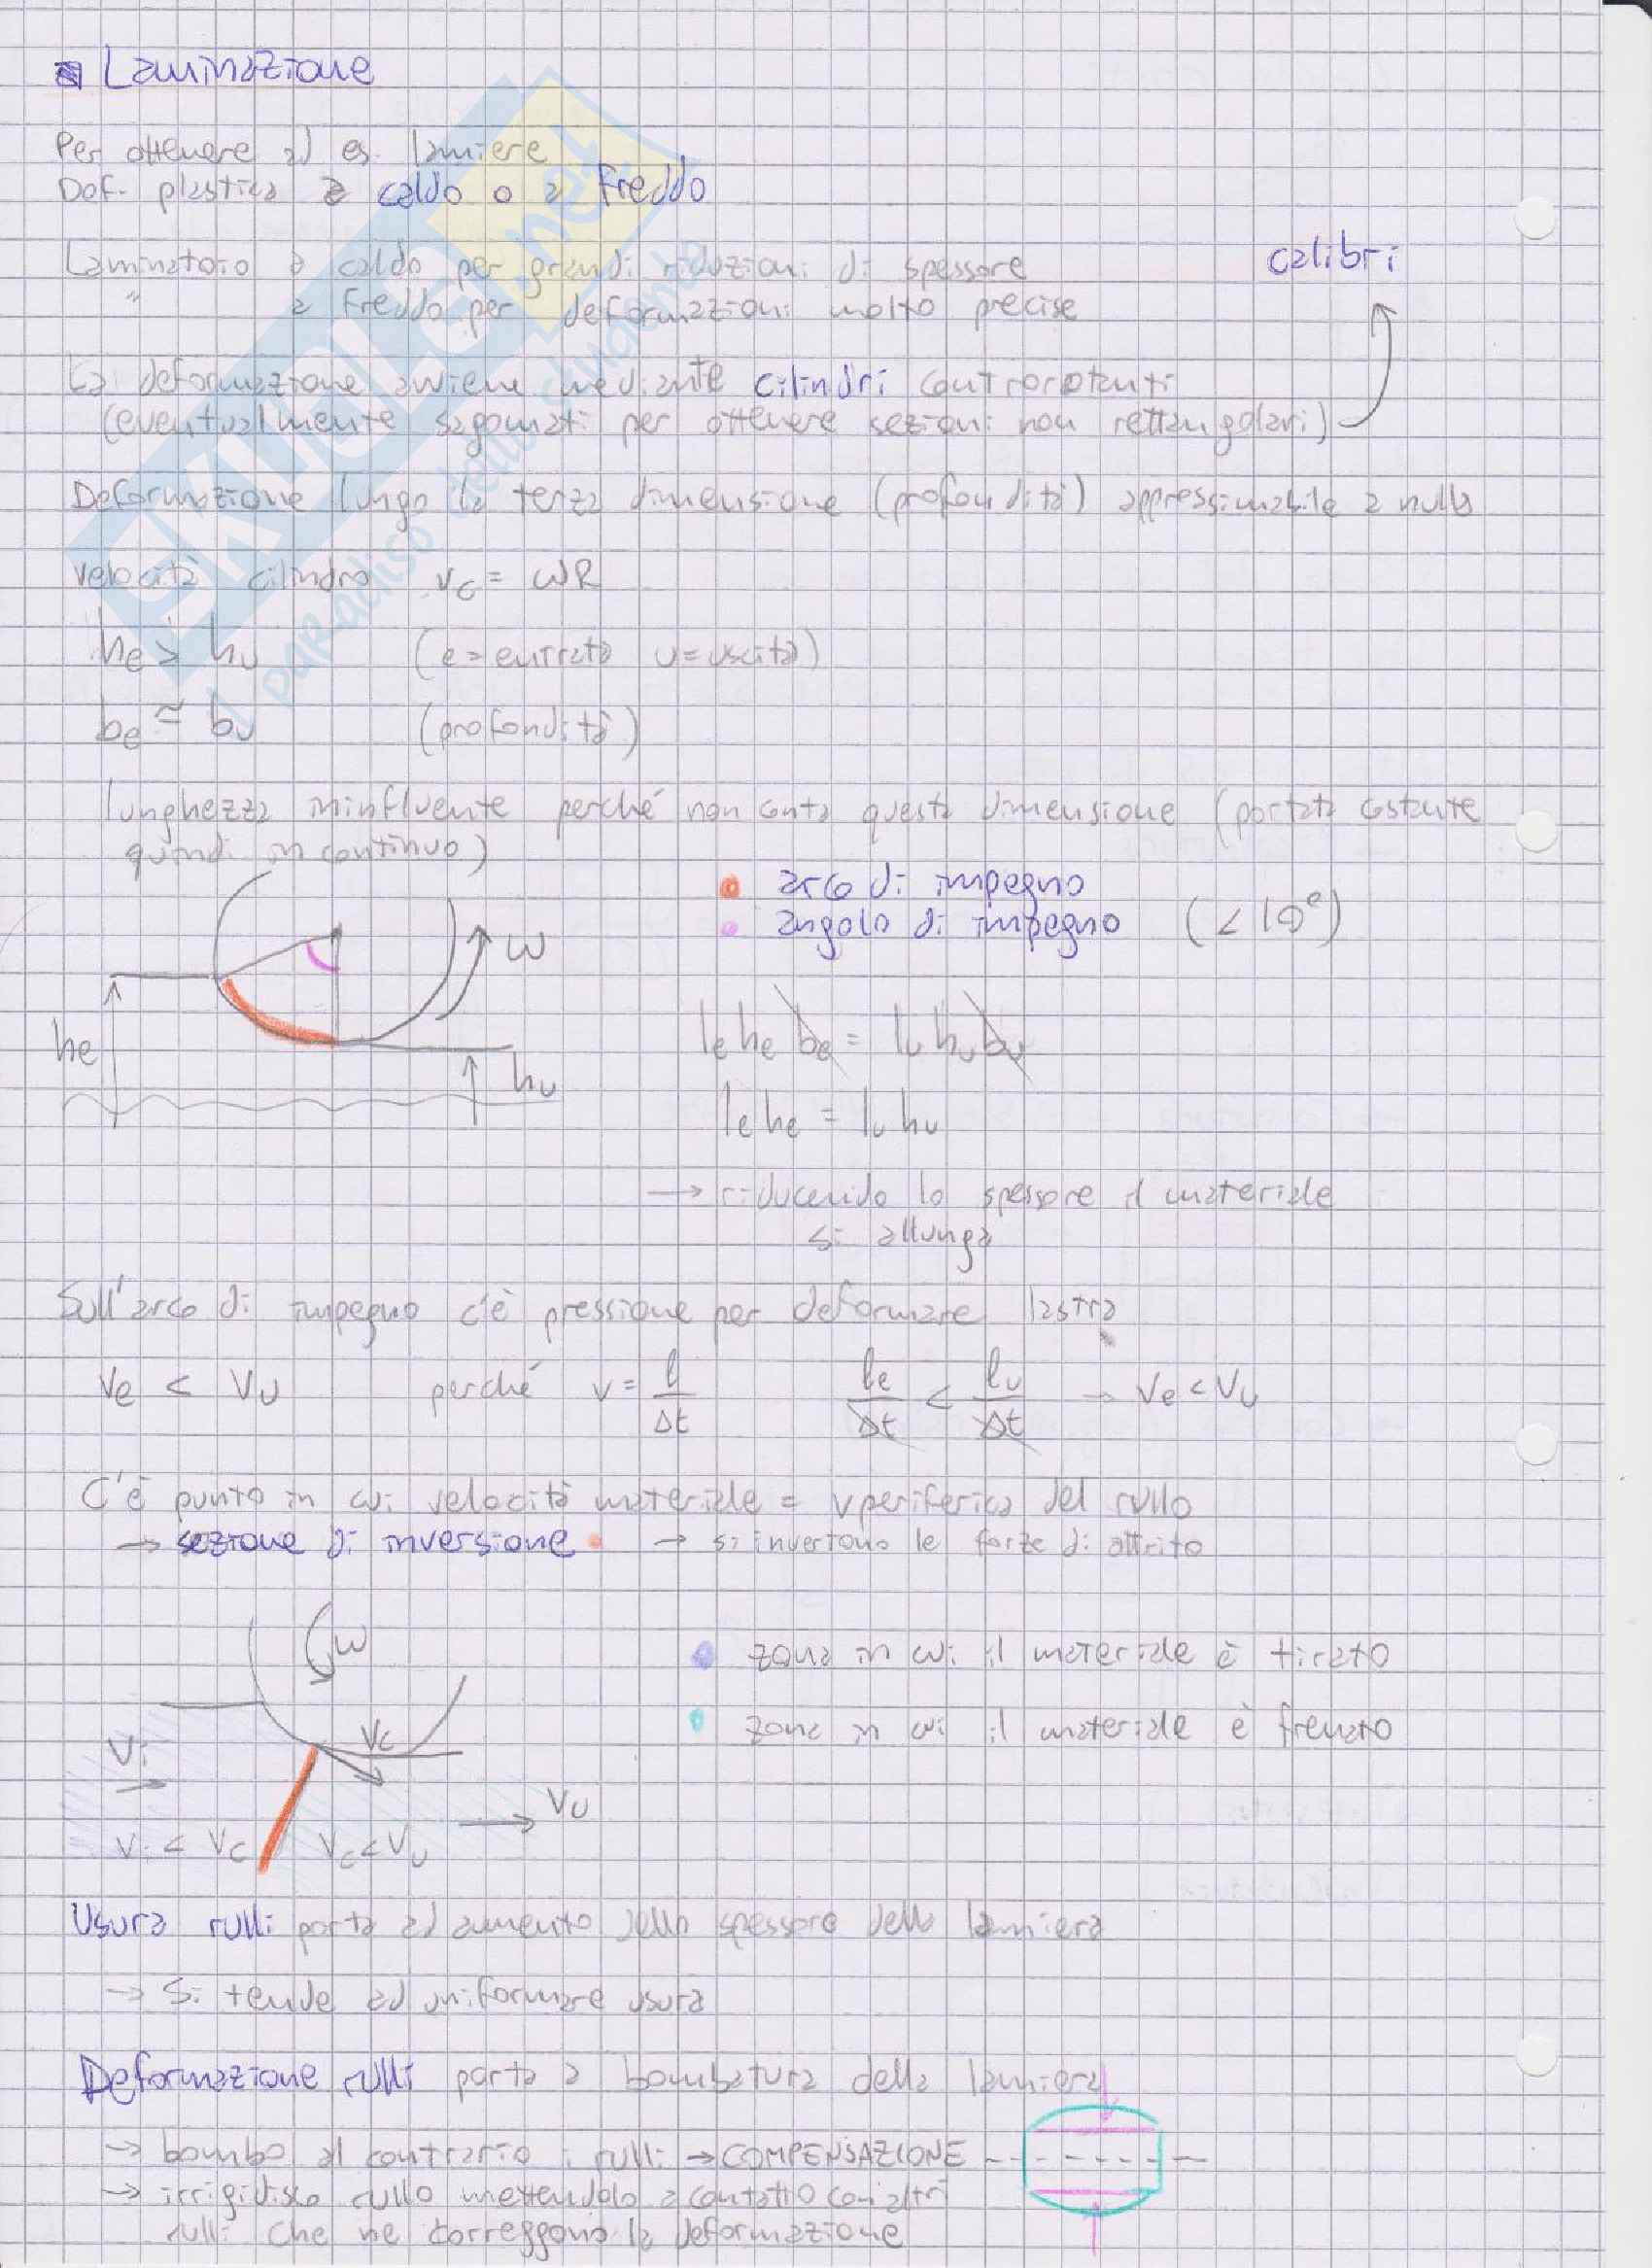 Laminazione
Per ottenere ad es. lamiere
Def. plastica a caldo o a freddo
Laminatoio a caldo per grandi riduzioni di spessore
calibri
" a freddo per deformazioni molto precise
La deformazione avviene mediante cilindri controrotanti
(eventualmente sagomati per ottenere sezioni non rettangolari)
Deformazione lungo la terza dimensione (profondità) appressimabile a nulla
velocità cilindro vc = ωR
he > hu (e=entrata u=uscita)
be ≃ bu (profondità)
lunghezza ininfluente perché non conta questa dimensione (portata costante
quindi in continuo)
arco di impegno
angolo di impegno (<10°)
ω
he
hu
le he be = lu hu bu
le he = lu hu
→ riducendo lo spessore il materiale
si allunga
Sull'arco di impegno c'è pressione per deformare lastra
Ve < Vu perché v = l/Δt le/Δt < lu/Δt → Ve < Vu
C'è punto in cui velocità materiale = v periferica del rullo
→ sezione di inversione → si invertono le forze di attrito
ω
zona in cui il materiale è tirato
zona in cui il materiale è frenato
Vi
Vc
Vu
Vi < Vc
Vc < Vu
Usura rulli porta ad aumento dello spessore della lamiera
→ Si tende ad uniformare usura
Deformazione rulli porta a bombatura della lamiera
→ bombo al contrario i rulli → COMPENSAZIONE
→ irrigidisco rullo mettendolo a contatto con altri
rulli che ne correggono la deformazione
SKUOLA.net
il paradiso dello studente